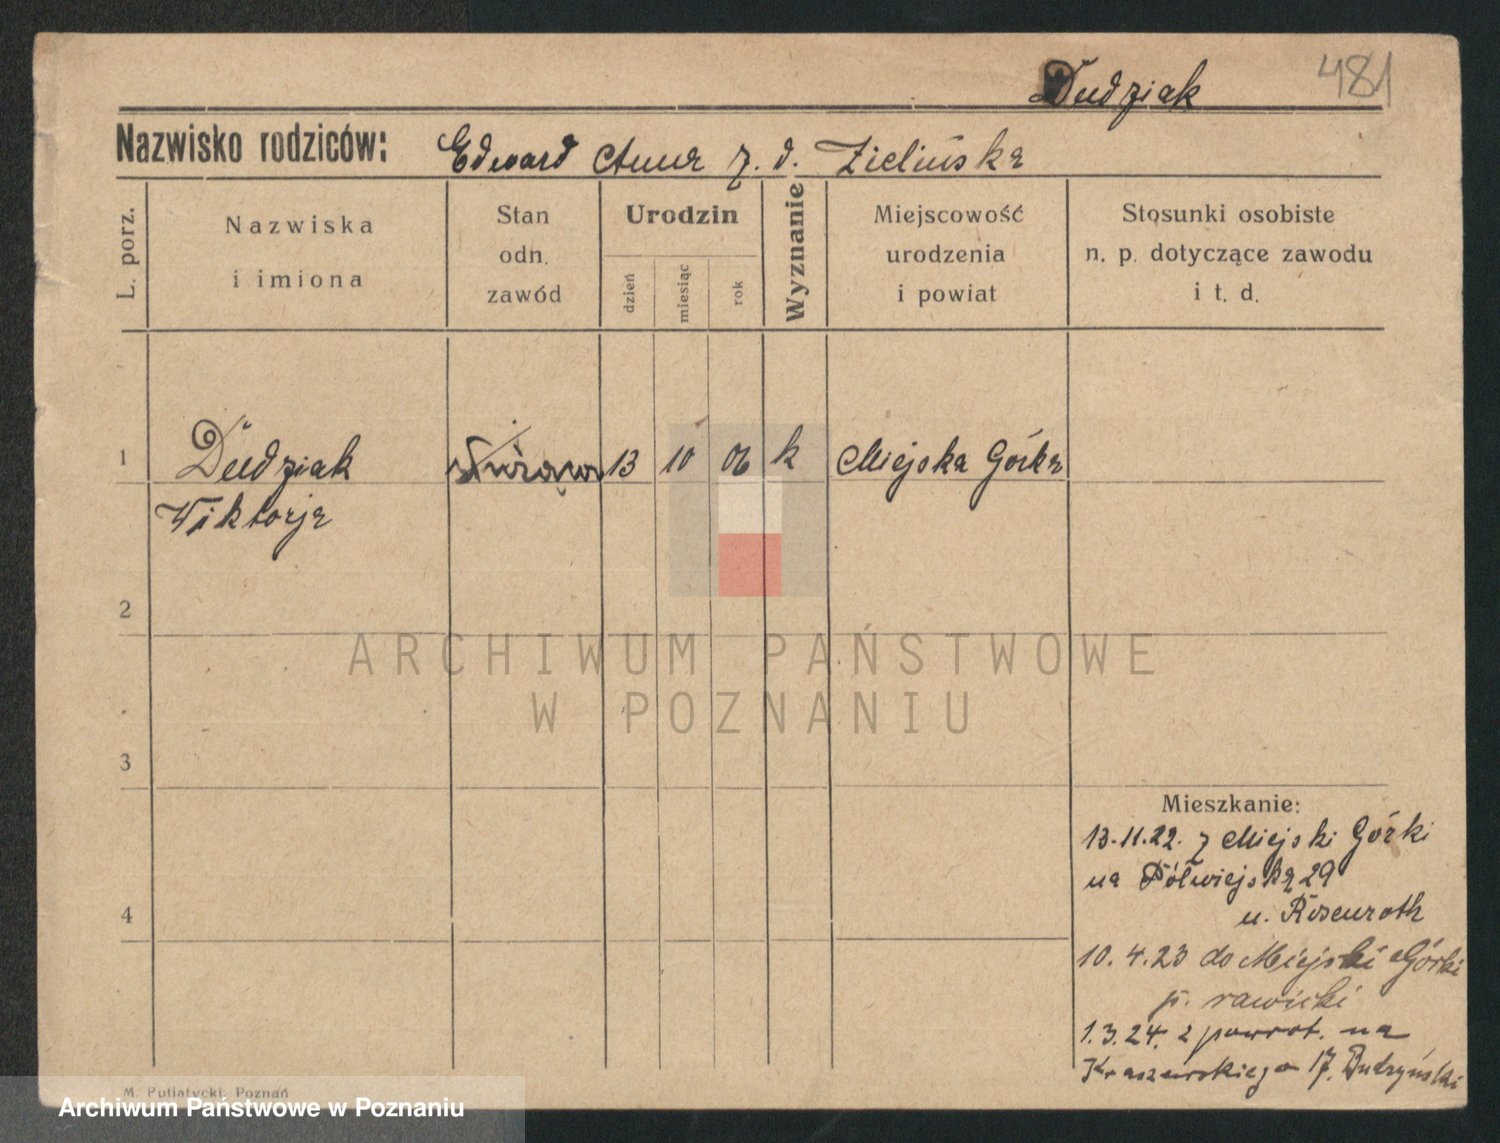 Dudziak 481
Nazwisko rodziców: Edward Anna z. d. Zielińska
L. porz.
Nazwiska
i imiona
Stan
odn.
zawód
Urodzin
dzień
miesiąc
rok
Wyznanie
Miejscowość
urodzenia
i powiat
Stosunki osobiste
n. p. dotyczące zawodu
i t. d.
1 Dudziak służąca 13 10 06 k Miejska Górka
Wiktorja
2
3
4
Mieszkanie:
13.11.22. z Miejski Górki
na Półwiejską 29
u. Rosenroth
10. 4.23 do Miejski Górki
p. rawicki
1.3.24. z powrot. na
Kraszewskiego 17. Budzyński
M. Putiatycki, Poznań
ARCHIWUM PAŃSTWOWE
W POZNANIU
Archiwum Państwowe w Poznaniu